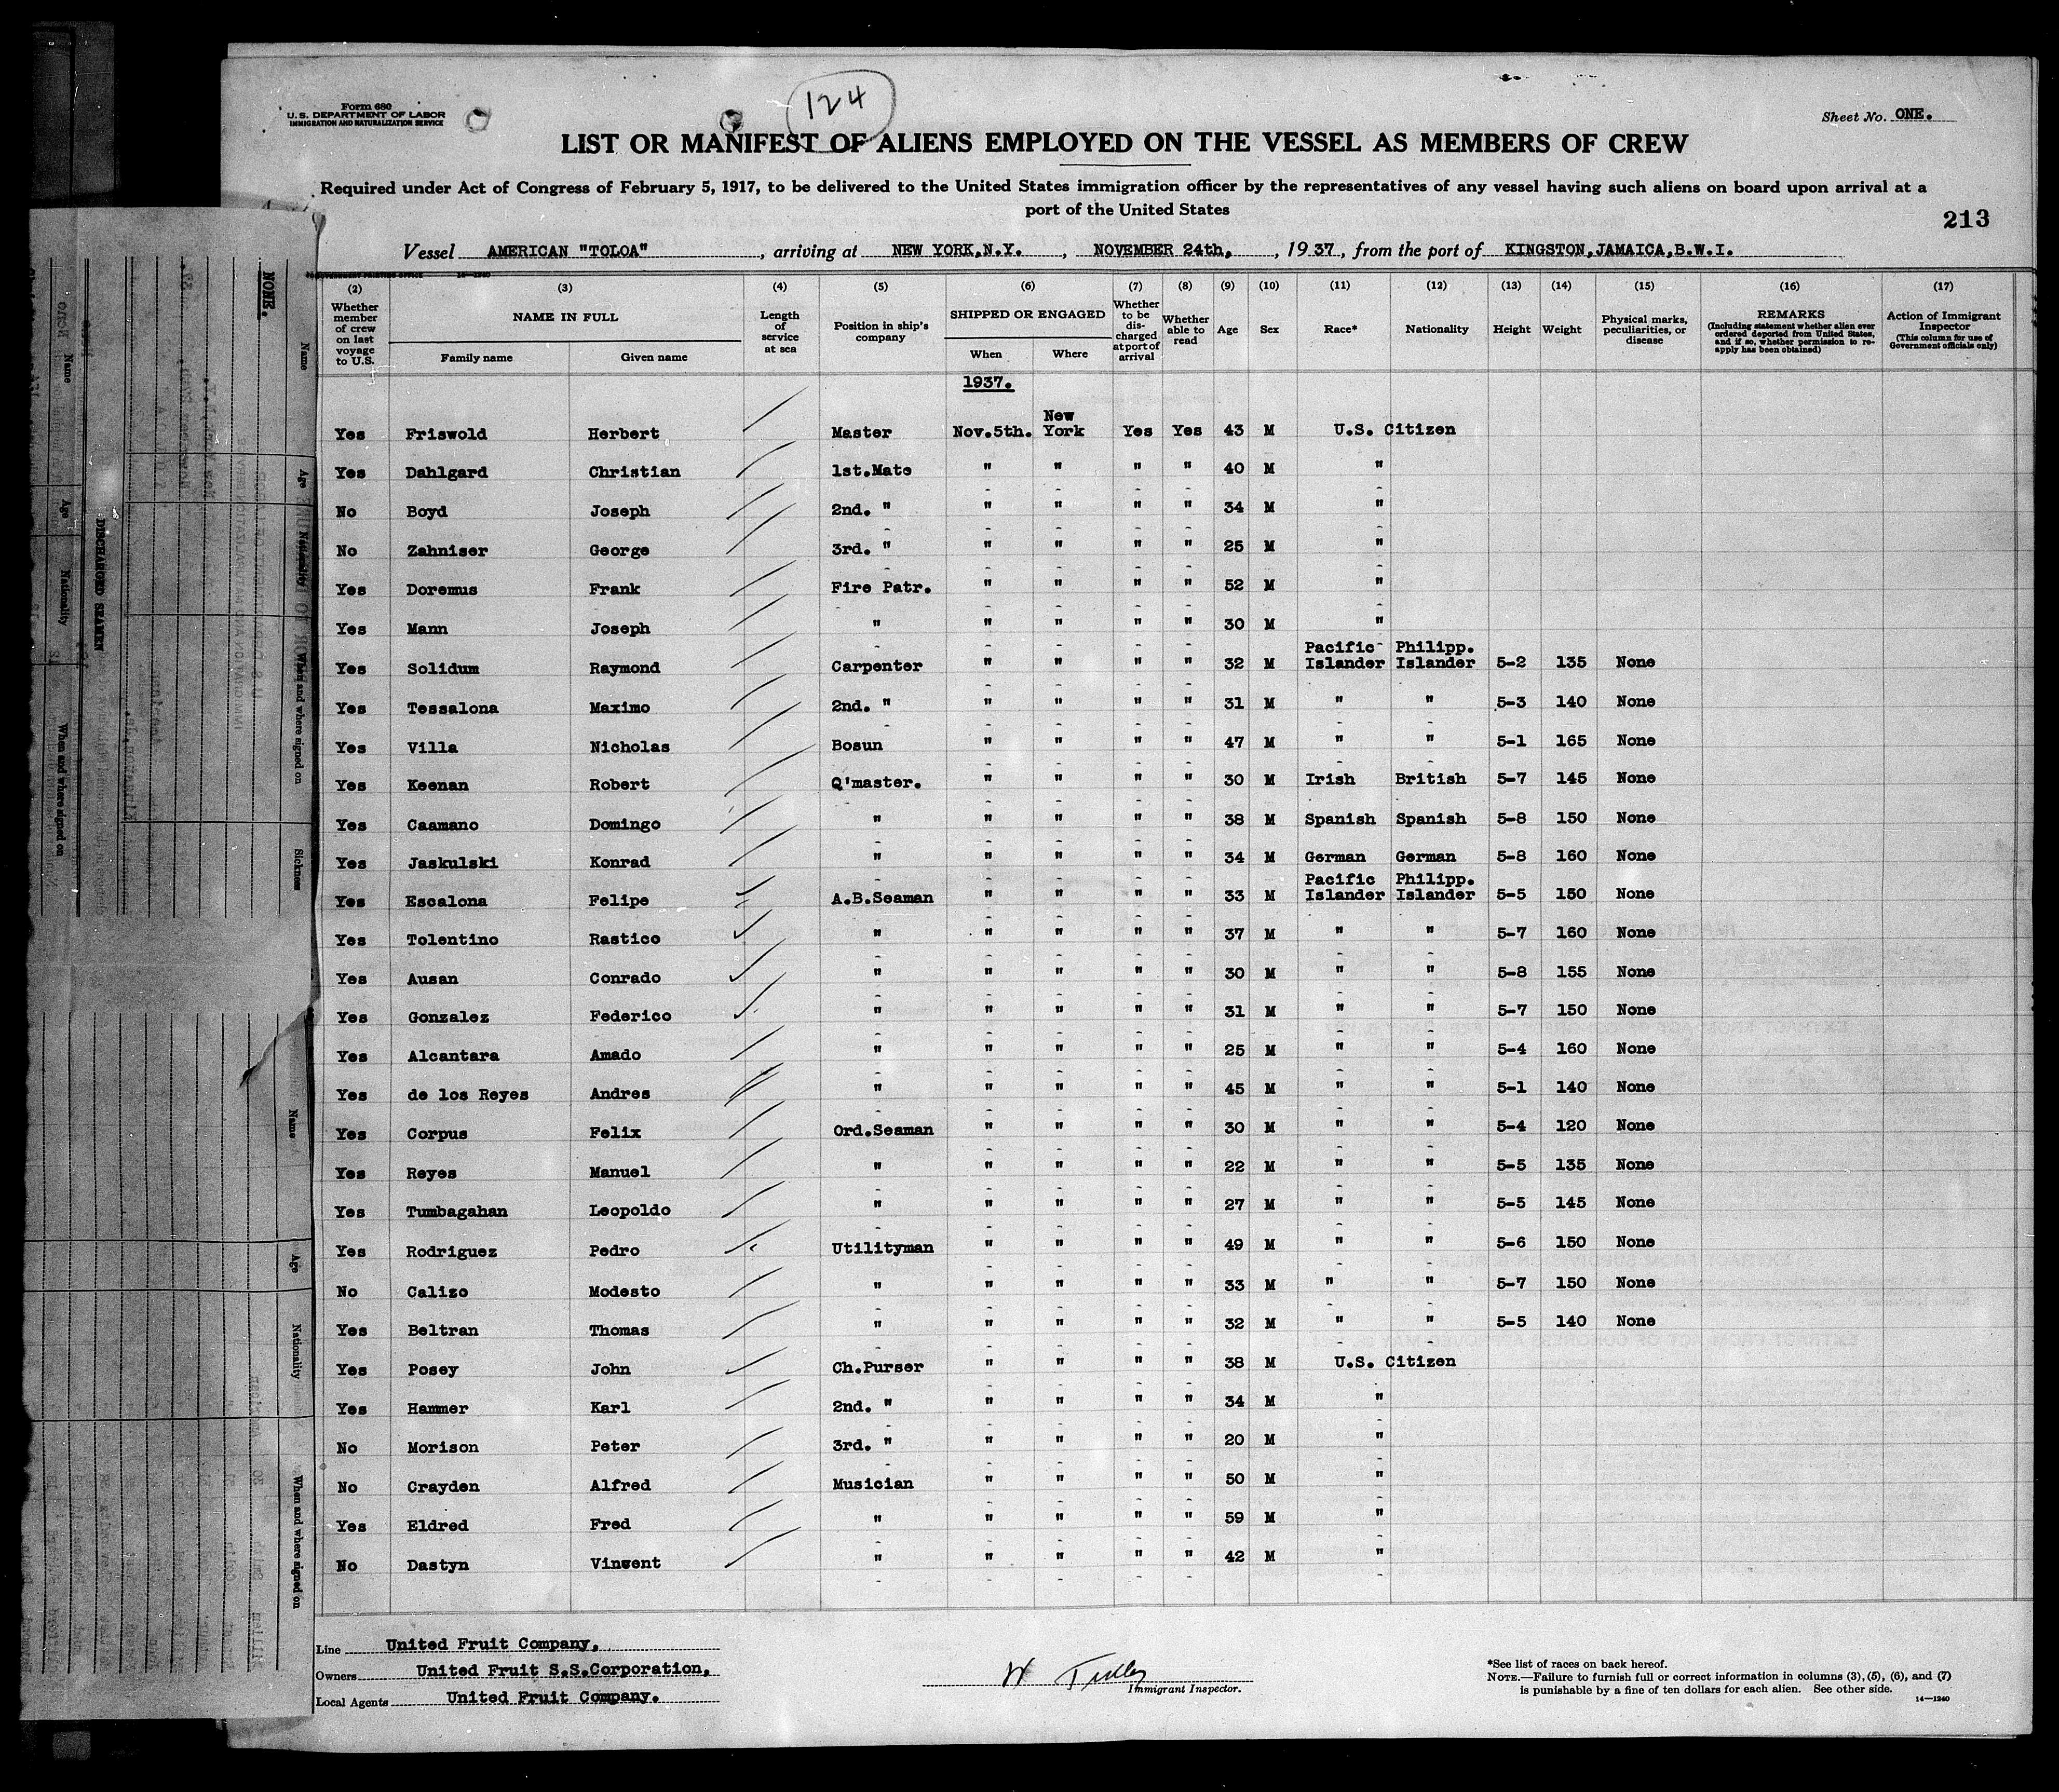 124
Form 680
U. S. DEPARTMENT OF LABOR
IMMIGRATION AND NATURALIZATION SERVICE
Sheet No. ONE.
LIST OR MANIFEST OF ALIENS EMPLOYED ON THE VESSEL AS MEMBERS OF CREW
Required under Act of Congress of February 5, 1917, to be delivered to the United States immigration officer by the representatives of any vessel having such aliens on board upon arrival at a
port of the United States
213
Vessel AMERICAN "TOLOA", arriving at NEW YORK,N.Y., NOVEMBER 24th, , 1937, from the port of KINGSTON,JAMAICA,B.W.I.
(2) (3) (4) (5) (6) (7) (8) (9) (10) (11) (12) (13) (14) (15) (16) (17)
Whether member of crew on last voyage to U.S. NAME IN FULL Family name Given name Length of service at sea Position in ship's company SHIPPED OR ENGAGED When Where Whether to be discharged at port of arrival Whether able to read Age Sex Race* Nationality Height Weight Physical marks, peculiarities, or disease REMARKS (Including statement whether alien ever ordered deported from United States, and if so, whether permission to reapply has been obtained) Action of Immigrant Inspector (This column for use of Government officials only)
1937.
Yes Friswold Herbert Master Nov.5th. New York Yes Yes 43 M U.S. Citizen
Yes Dahlgard Christian 1st.Mate " " " " 40 M "
No Boyd Joseph 2nd. " " " " " 34 M "
No Zahniser George 3rd. " " " " " 25 M "
Yes Doremus Frank Fire Patr. " " " " 52 M "
Yes Mann Joseph " " " " " 30 M "
Yes Solidum Raymond Carpenter " " " " 32 M Pacific Islander Philipp. Islander 5-2 135 None
Yes Tessalona Maximo 2nd. " " " " " 31 M " " 5-3 140 None
Yes Villa Nicholas Bosun " " " " 47 M " " 5-1 165 None
Yes Keenan Robert Q'master. " " " " 30 M Irish British 5-7 145 None
Yes Caamano Domingo " " " " " 38 M Spanish Spanish 5-8 150 None
Yes Jaskulski Konrad " " " " " 34 M German German 5-8 160 None
Yes Escalona Felipe A.B.Seaman " " " " 33 M Pacific Islander Philipp. Islander 5-5 150 None
Yes Tolentino Rastico " " " " " 37 M " " 5-7 160 None
Yes Ausan Conrado " " " " " 30 M " " 5-8 155 None
Yes Gonzalez Federico " " " " " 31 M " " 5-7 150 None
Yes Alcantara Amado " " " " " 25 M " " 5-4 160 None
Yes de los Reyes Andres " " " " " 45 M " " 5-1 140 None
Yes Corpus Felix Ord.Seaman " " " " 30 M " " 5-4 120 None
Yes Reyes Manuel " " " " " 22 M " " 5-5 135 None
Yes Tumbagahan Leopoldo " " " " " 27 M " " 5-5 145 None
Yes Rodriguez Pedro Utilityman " " " " 49 M " " 5-6 150 None
No Calizo Modesto " " " " " 33 M " " 5-7 150 None
Yes Beltran Thomas " " " " " 32 M " " 5-5 140 None
Yes Posey John Ch.Purser " " " " 38 M U.S. Citizen
Yes Hammer Karl 2nd. " " " " " 34 M "
No Morison Peter 3rd. " " " " " 20 M "
No Crayden Alfred Musician " " " " 50 M "
Yes Eldred Fred " " " " " 59 M "
No Dastyn Vincent " " " " " 42 M "
Line United Fruit Company.
Owners United Fruit S.S.Corporation.
Local Agents United Fruit Company.
Immigrant Inspector.
*See list of races on back hereof.
NOTE.—Failure to furnish full or correct information in columns (3), (5), (6), and (7)
is punishable by a fine of ten dollars for each alien. See other side.
14—1240
NONE.
Name
Age
Nationality
When and where signed on
Sickness
DISCHARGED SEAMEN
Name
Age
Nationality
When and where signed on
Name
Age
Nationality
When and where signed on